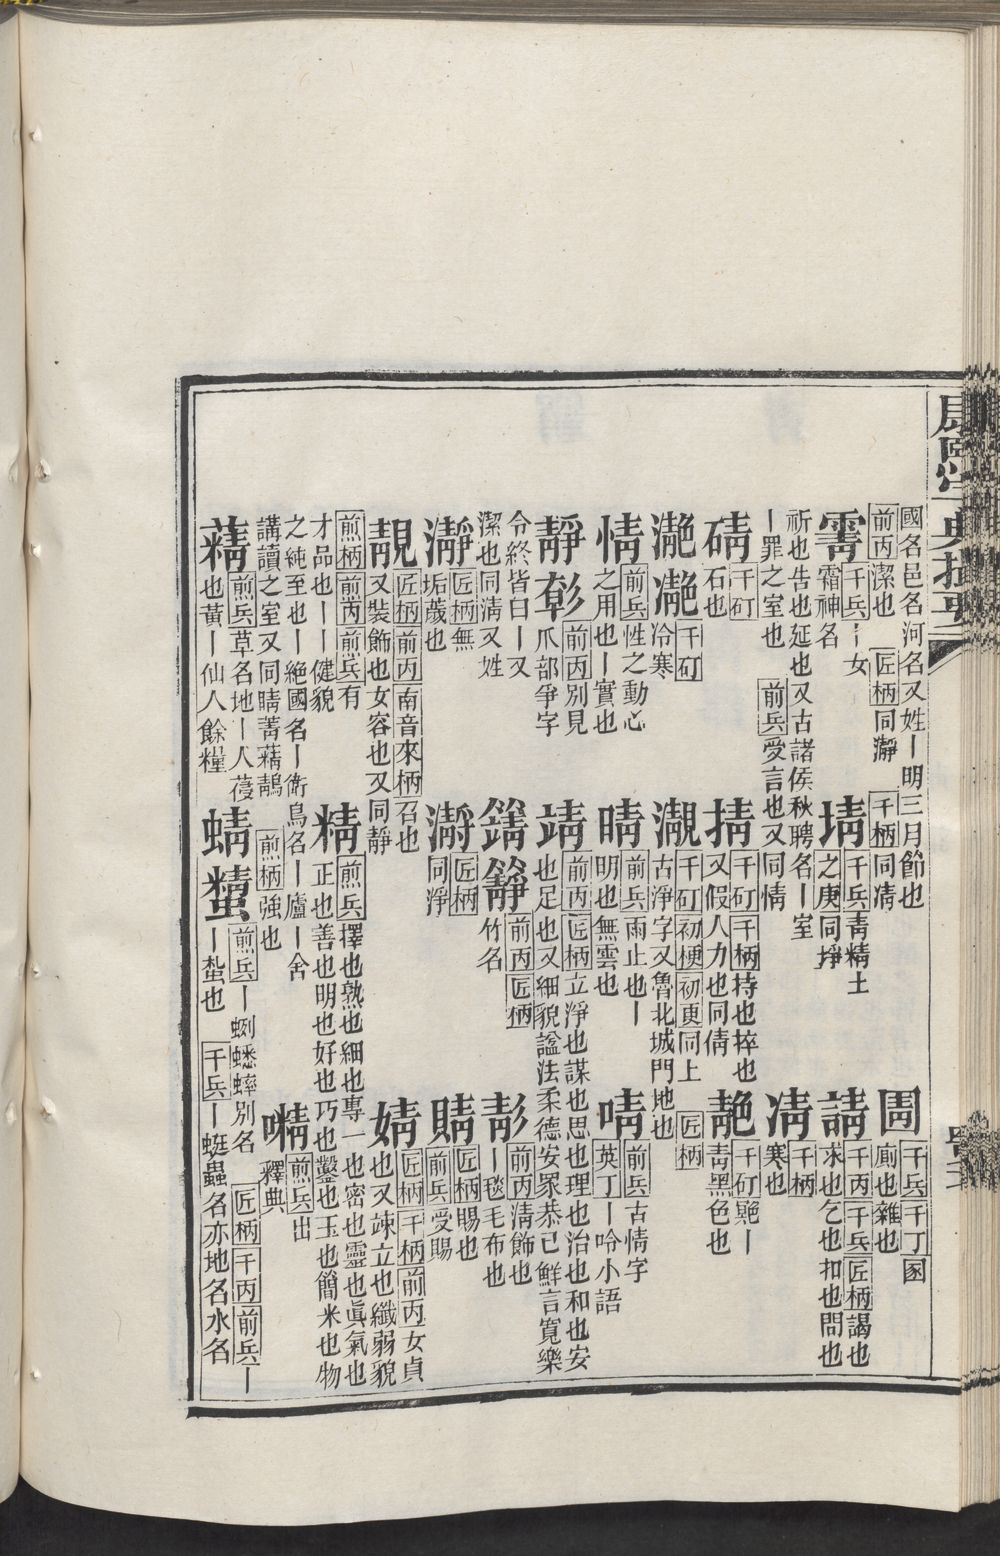 康熙字典撮要
國名邑名河名又姓丨明三月節也
前丙潔也 匠柄同瀞 千柄同凊
圊 千兵千丁圂
廁也雜也
霋 千兵丨女
霜神名
埥 千兵青精土
之庚同掙
請 千丙千兵匠柄謁也
求也乞也扣也問也
祈也告也延也又古諸侯秋聘名丨室
丨罪之室也 前兵受言也又同情
凊 千柄
寒也
碃 千矴
石也
掅 千矴千柄持也捽也
又假人力也同倩
䑶 千矴䑶丨
青黑色也
千矴
冷寒
千矴初梗初更同上 匠柄
古淨字又魯北城門地也
情 前兵性之動心
之用也丨實也
晴 前兵雨止也丨
明也無雲也
啨 前兵古情字
英丁丨唅小語
靜 前丙別見
爪部爭字
靖 前丙匠柄立淨也謀也思也理也治也和也安
也足也又細貌謚法柔德安衆恭己鮮言寬樂
令終皆曰丨又
前丙匠柄
竹名
前丙清飾也
丨毯毛布也
潔也同清又姓
瀞 匠柄無
垢薉也
匠柄
同淨
䝼 匠柄賜也
前兵受賜
靚 匠柄前丙南音來柄召也
又裝飾也女容也又同靜
婧 匠柄千柄前丙女貞
也又竦立也纖弱貌
煎柄前丙前兵有
才品也丨丨健貌
精 煎兵擇也熟也細也專一也密也靈也眞氣也
正也善也明也好也巧也鑿也玉也簡米也物
之純至也丨絕國名丨衛鳥名丨廬丨舍
講讀之室又同睛菁蔳鶄 煎柄強也
煎兵出
釋典
蔳 煎兵草名地丨人葠
也黃丨仙人餘糧
蜻 煎兵丨蛚蟋蟀別名 匠柄千丙前兵丨
丨蝵也 千兵丨蜓蟲名亦地名水名